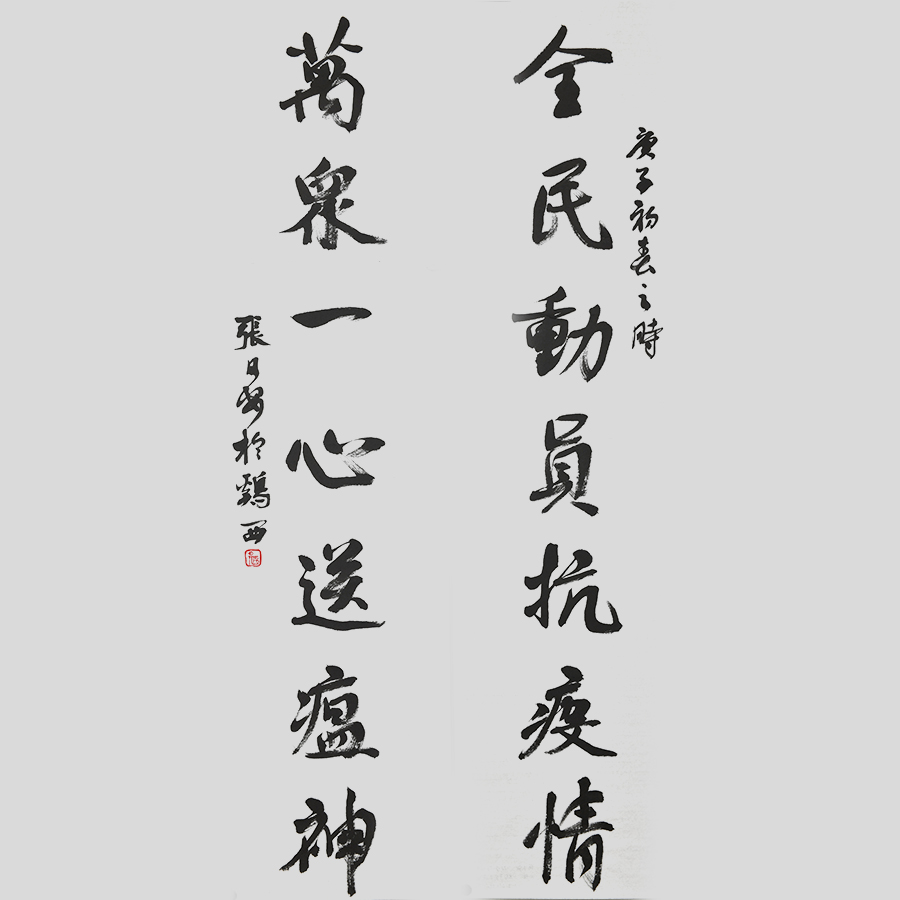 庚子初春之時
全民動員抗疫情
萬衆一心送瘟神
張日安於鷄西